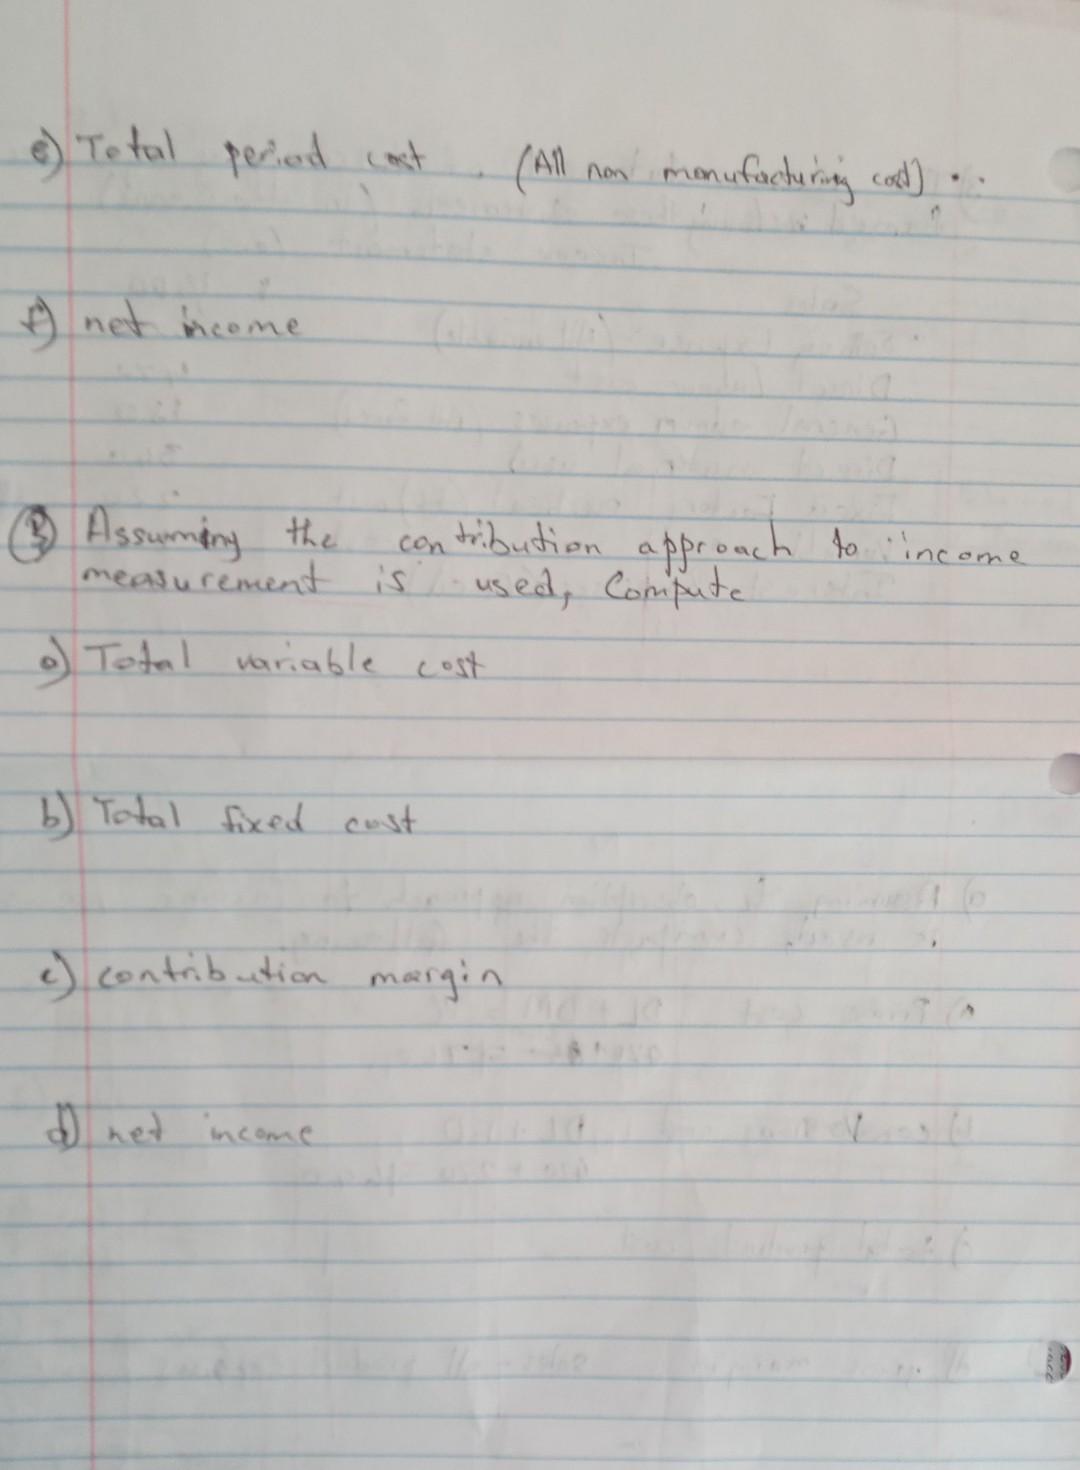 e) Total period cost. (All non manufacturing cost)..
f) net income
B) Assuming the contribution approach to income
measurement is used, Compute
a) Total variable cost
b) Total fixed cost
c) contribution margin
d) net income